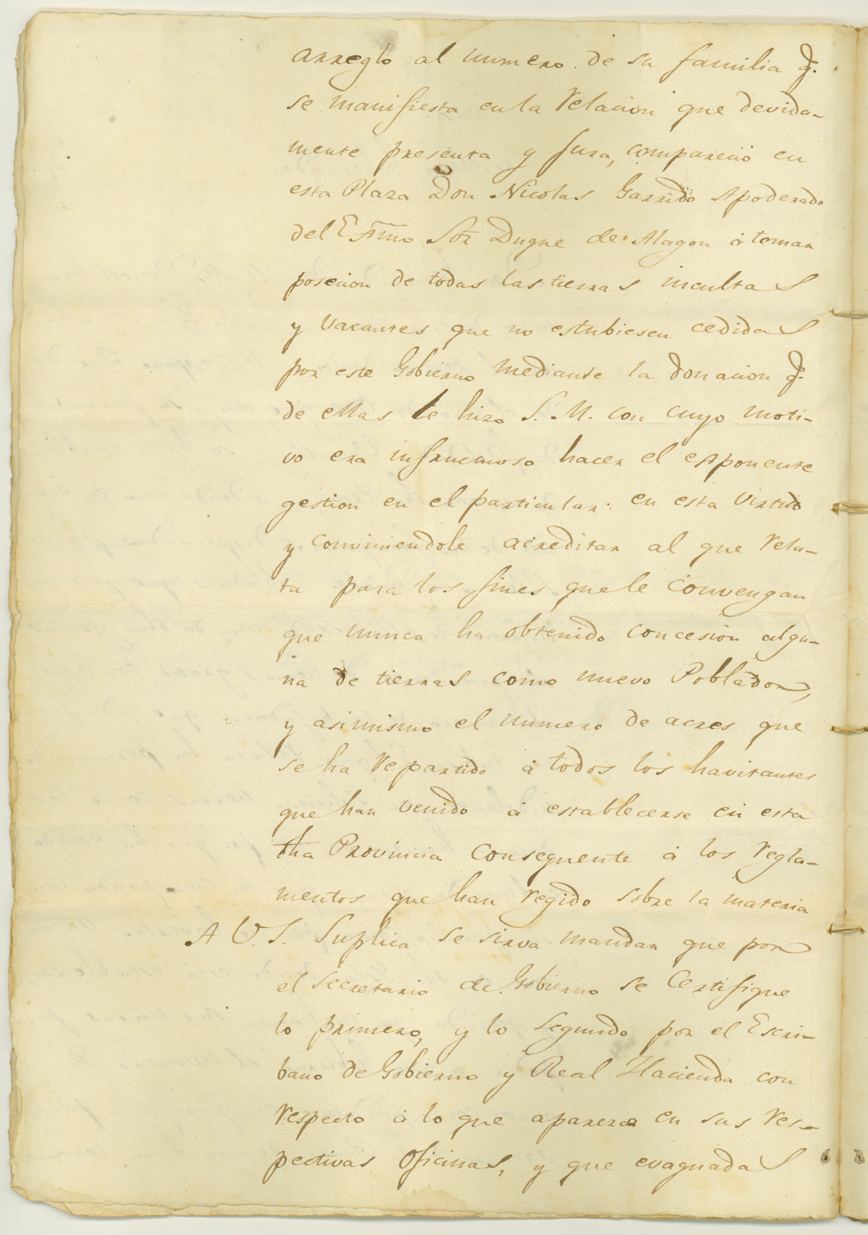 arreglo al numero de su familia q.
se manifiesta en la relacion que devida-
mente presenta y jura, comparecio en
esta Plaza Don Nicolas Garrido Apoderado
del Exmo Sor Duque de Alagon á tomar
posecion de todas las tierras incultas
y vacantes que no estubiesen cedidas
por este Gobierno mediante la donacion q.
de ellas le hizo S. M. con cuyo moti-
vo era infructuoso hacer el esponente
gestion en el particular: en esta virtud
y conviniendole acreditar al que rela-
ta para los fines que le convengan
que nunca ha obtenido concesion algu-
na de tierras como nuevo Poblador,
y asimismo el numero de acres que
se ha repartido á todos los havitantes
que han venido á establecerse en esta
dha Provincia conseguente á los regla-
mentos que han regido sobre la materia
A V. S. Suplica se sirva mandar que por
el secretario de Gobierno se Certifique
lo primero, y lo segundo por el Escri-
bano de Gobierno y Real Hacienda con
respecto á lo que aparezca en sus res-
pectivas oficinas, y que evaguadas